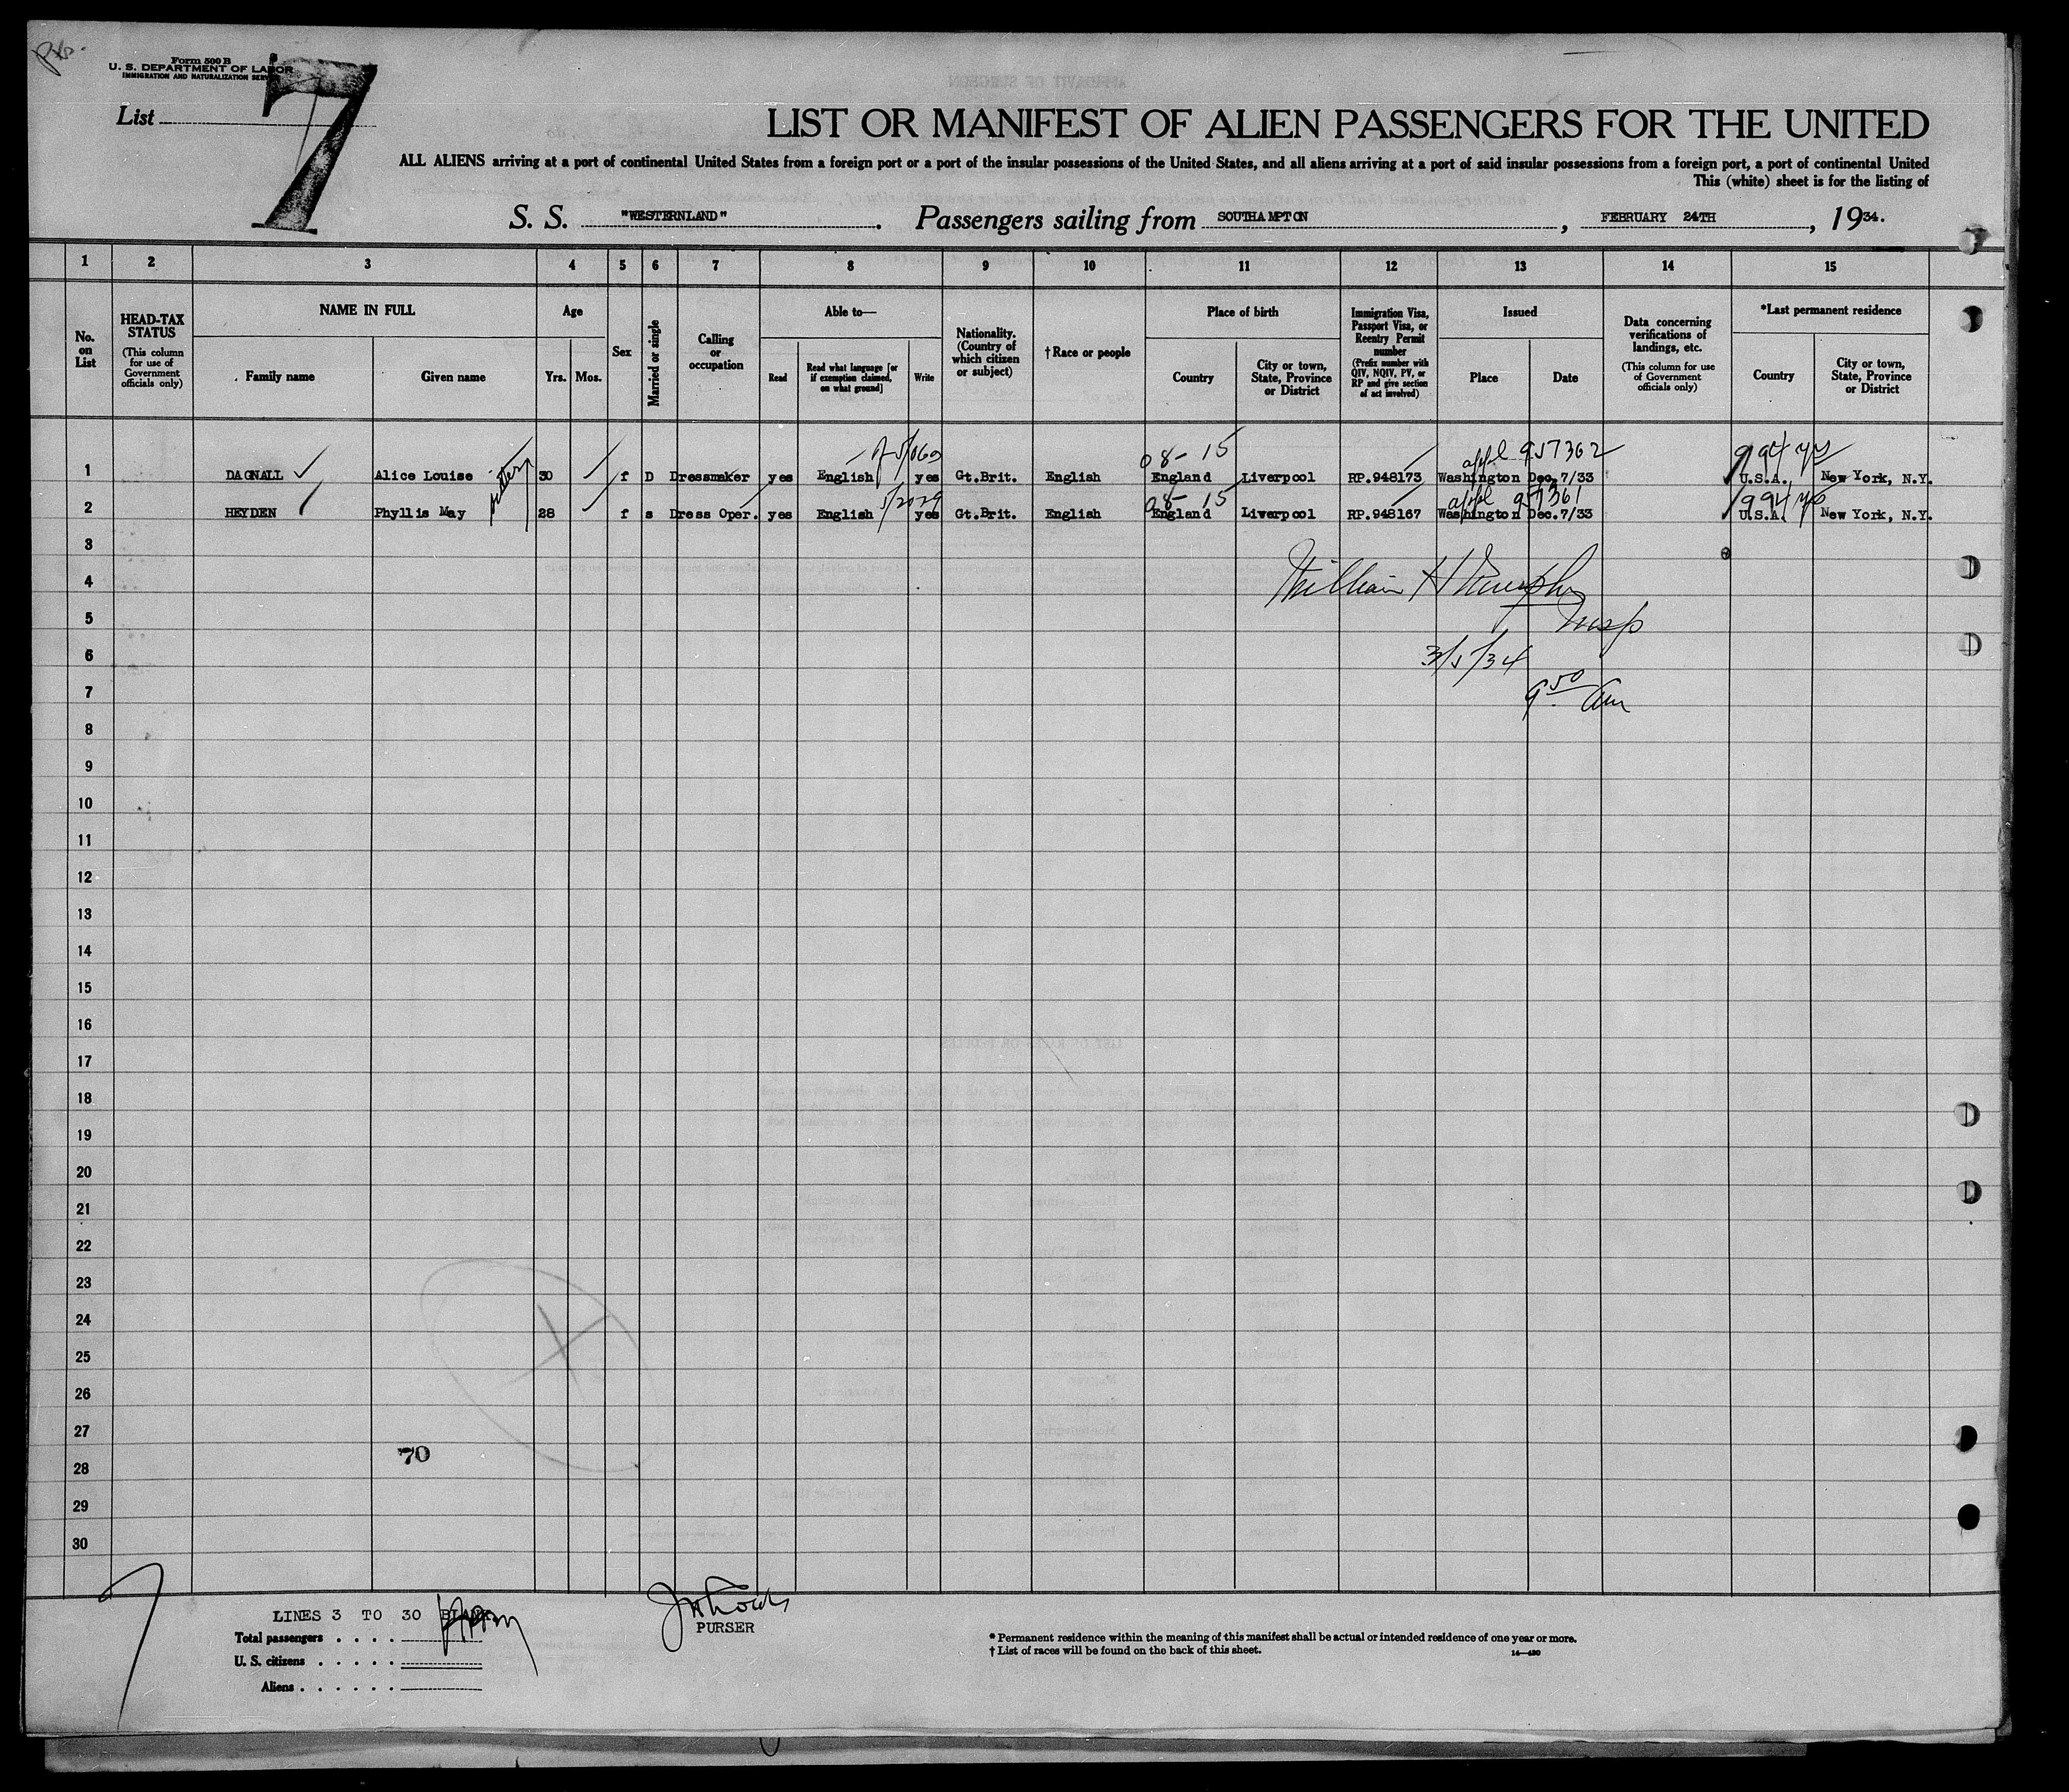 Form 500 B
U. S. DEPARTMENT OF LABOR
IMMIGRATION AND NATURALIZATION SERVICE
List
7
LIST OR MANIFEST OF ALIEN PASSENGERS FOR THE UNITED
ALL ALIENS arriving at a port of continental United States from a foreign port or a port of the insular possessions of the United States, and all aliens arriving at a port of said insular possessions from a foreign port, a port of continental United
This (white) sheet is for the listing of
S. S. "WESTERNLAND". Passengers sailing from SOUTHAMPTON, FEBRUARY 24TH, 1934.
1 2 3 4 5 6 7 8 9 10 11 12 13 14 15
No. on List
HEAD-TAX STATUS (This column for use of Government officials only)
NAME IN FULL
Family name
Given name
Age
Yrs. Mos.
Sex
Married or single
Calling or occupation
Able to—
Read
Read what language [or if exemption claimed, on what ground]
Write
Nationality. (Country of which citizen or subject)
†Race or people
Place of birth
Country
City or town, State, Province or District
Immigration Visa, Passport Visa, or Reentry Permit number (Prefix number with QIV, NQIV, PV, or RP and give section of act involved)
Issued
Place
Date
Data concerning verifications of landings, etc. (This column for use of Government officials only)
*Last permanent residence
Country
City or town, State, Province or District
08-15 appl 957362
1 DAGNALL Alice Louise 30 f D Dressmaker yes English yes Gt.Brit. English England Liverpool RP.948173 Washington Dec.7/33 U.S.A. New York, N.Y.
08-15 appl 957361
2 HEYDEN Phyllis May 28 f s Dress Oper. yes English yes Gt.Brit. English England Liverpool RP.948167 Washington Dec.7/33 U.S.A. New York, N.Y.
3
4 William H Murphy
5 Insp
6 3/5/34
7 9 50 Am
8
9
10
11
12
13
14
15
16
17
18
19
20
21
22
23
24
25
26
27
70
28
29
30
LINES 3 TO 30 BLANK
PURSER
Total passengers . . . .
U. S. citizens . . . . .
Aliens . . . . . .
* Permanent residence within the meaning of this manifest shall be actual or intended residence of one year or more.
† List of races will be found on the back of this sheet.
14—430